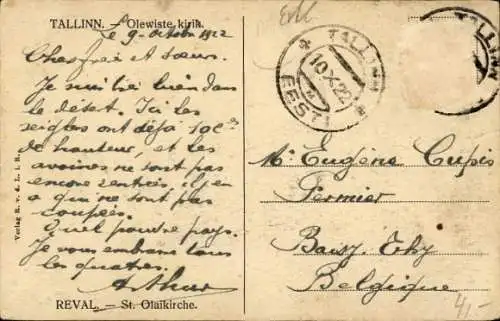 TALLINN. — Olewiste kirik.
Le 9 - Octobre 1922
Chers frei et sœurs.
Je suis ici bien dans
le désert. Ici les
seigles ont déjà 10 c
de hauteur, et les
avoines ne sont pas
encore rentrées. Il y en
a qui ne sont pas
coupées.
Quel pauvre pays.
Je vous embrasse tous
les quatres.
Arthur
REVAL. — St. Olaikirche.
Verlag R. v. d. L. i. R.
Estl
TALLINN
10.X.22
EESTI
TALLINN
Mr Eugène Cupis
Fermier
Belgique
4,-